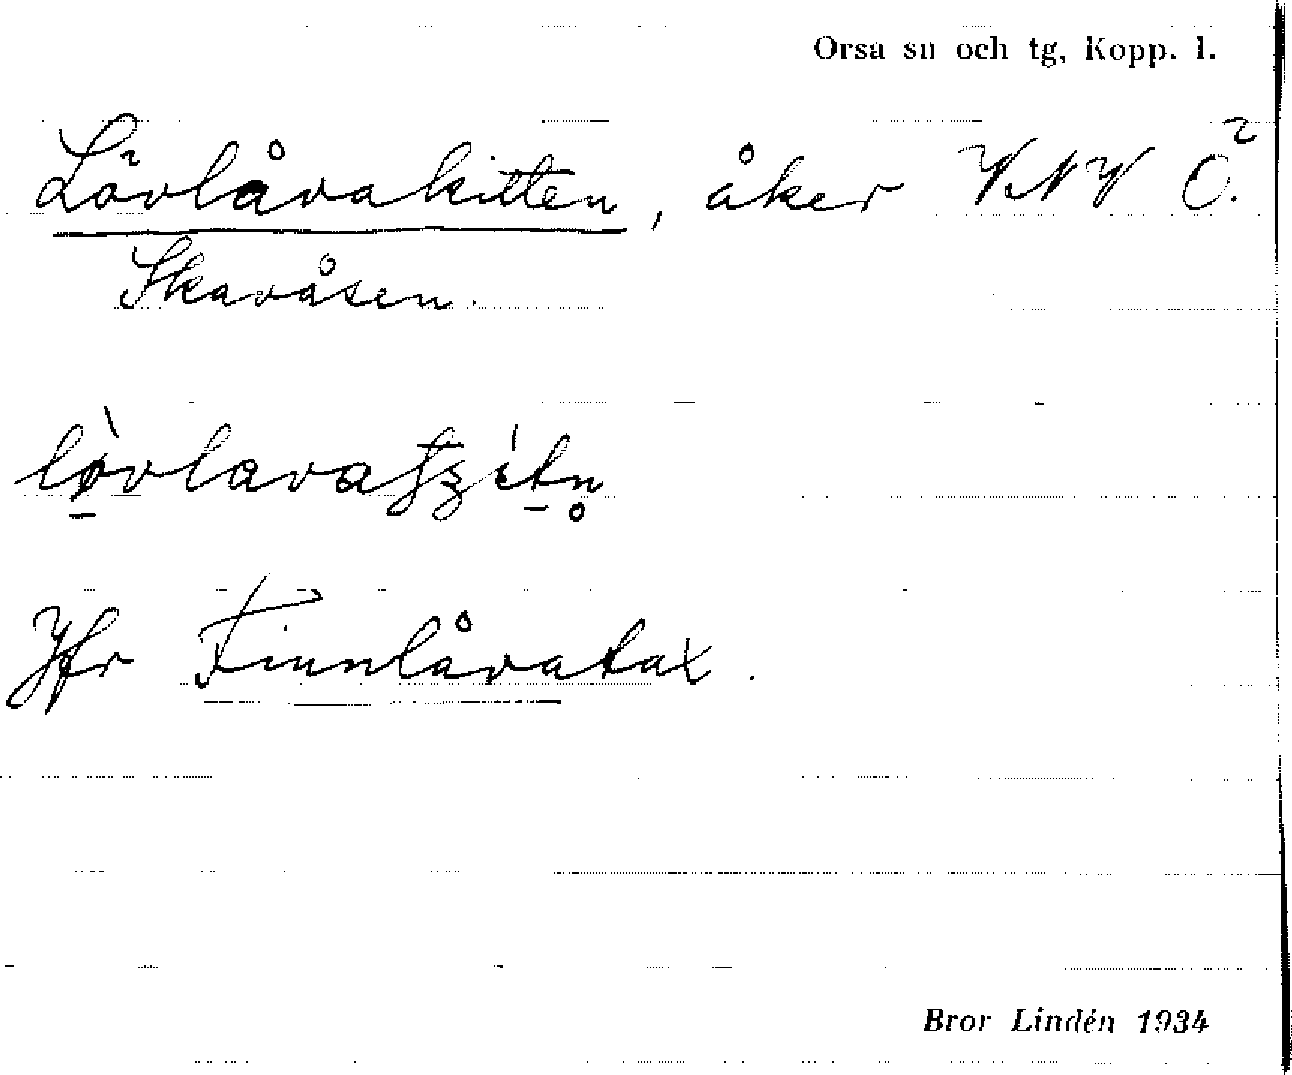 Orsa sn och tg, Kopp. l.
Lövlåvakitten, åker VNV Ö.
Skavåsen.
lòvlavafʒítn̥
Jfr Finnlåvatäx.
Bror Lindén 1934